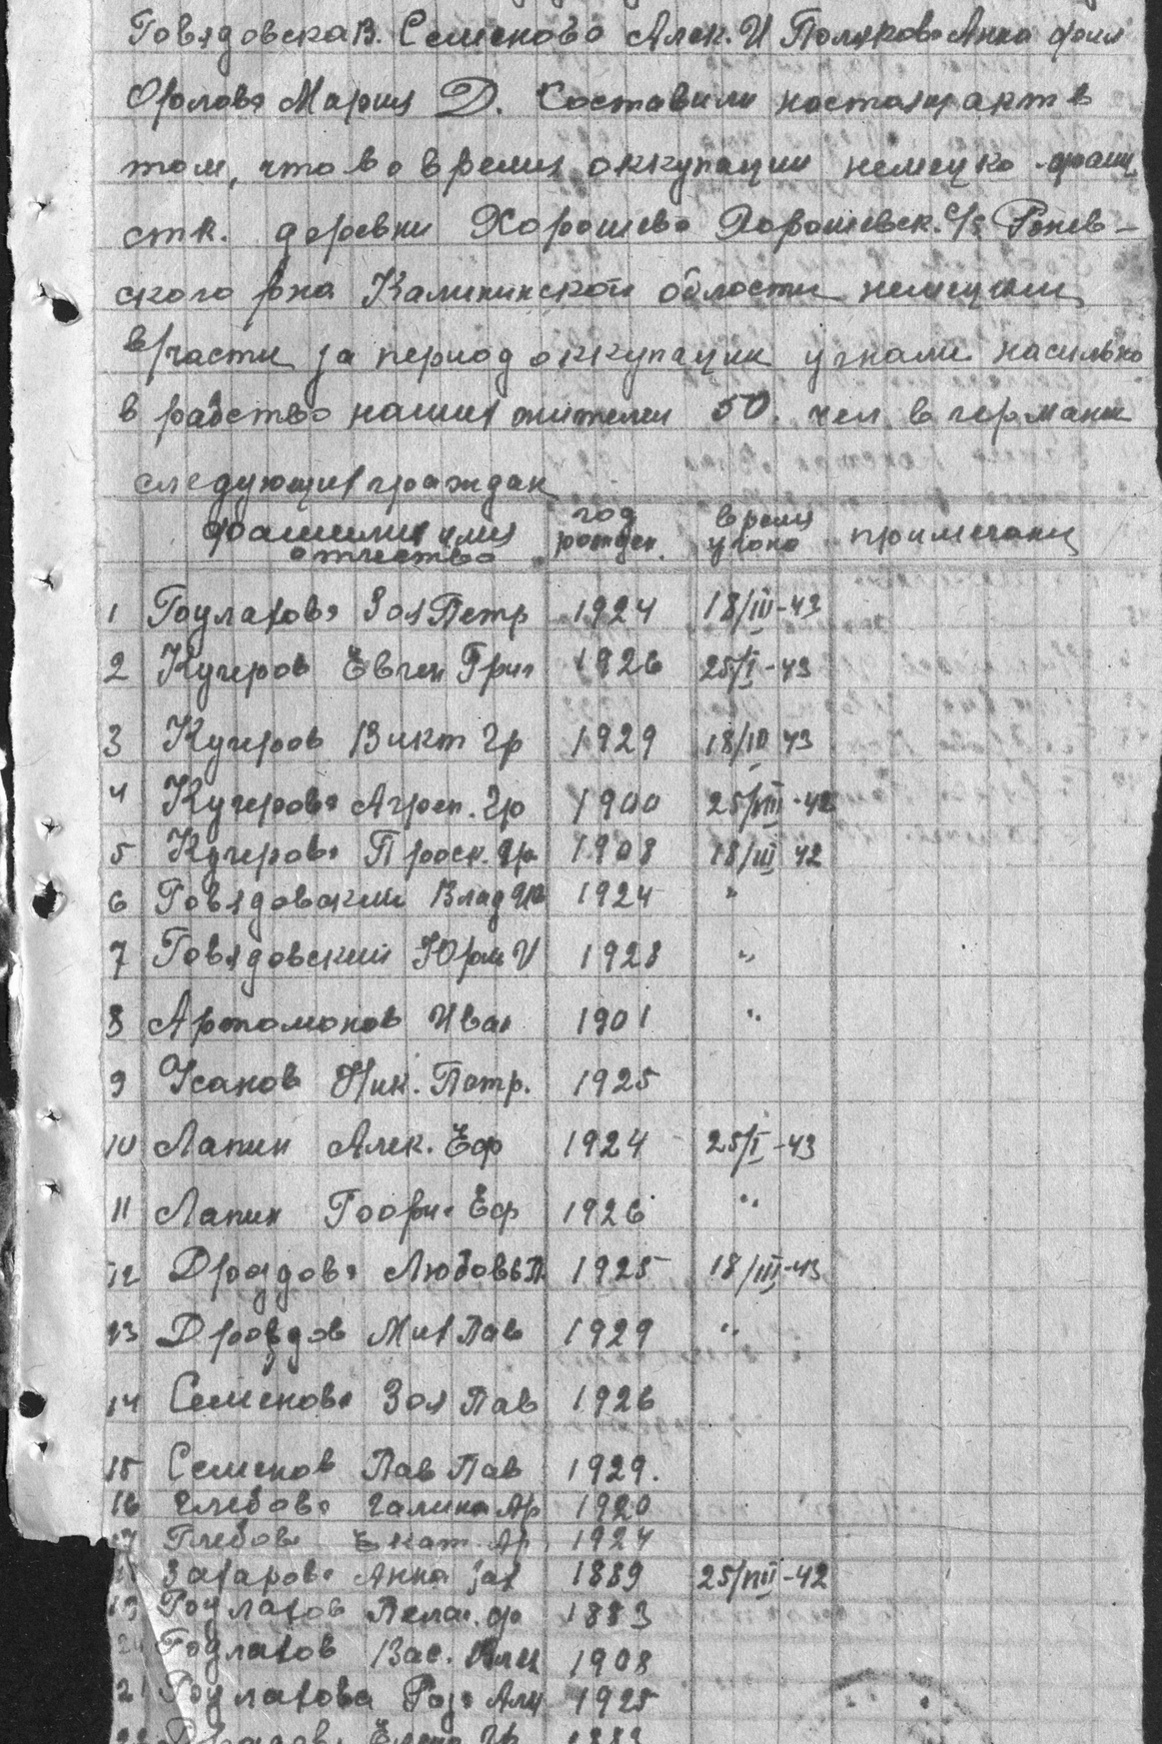 Говядовска В. Семенова Алек. И Полякова Анна
Орлова Мария Д. Составили настоящ акт в
том, что во время оккупации немецко фаши
стк. деревни Хорошево Хорошевск. с/с Ржев-
ского р-на Калининской области немецкими
власти за период оккупации угнали насильно
в рабство наших жителей 50. чел в германи
следующих граждан
фамилия имя отчество год рожден. время угона примечани
1 Зоя Петр 1924 18/III-43
2 Кучеров Евген Григ 1926 25/I-43
3 Кучеров Викт Гр 1929 18/III 43
4 Кучерова Агреп. Гр 1900 25/VIII-42
5 Кучерова Проск. Гр 1908 18/III 42
6 Говядовский Влад Ив 1924 "
7 Говядовский Юрий И 1928 "
8 Артомонов Иван 1901 "
9 Усанов Ник. Петр. 1925
10 Лапин Алек. Еф 1924 25/I-43
11 Лапин Георги Еф 1926 "
12 Дроздова Любовь П 1925 18/III-43
13 Дроздов Мих Пав 1929 "
14 Семенова Зоя Пав 1926
15 Семенов Пав Пав 1929.
16 Глебова Галина Ар 1920
17 Глебова Екат Ар 1924
18 Захарова Анна Зах 1889 25/VIII-42
19 Пелаг. 1883
20 Вас. 1908
21 1925
22 Елена Гр 1883